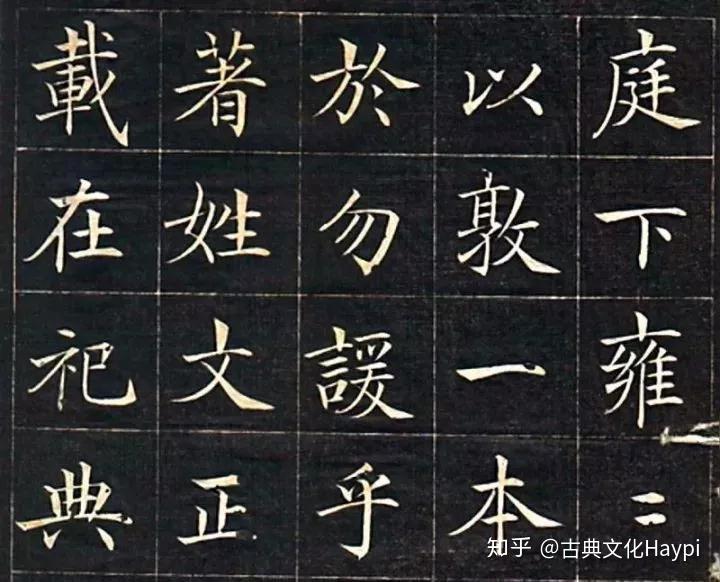 庭下雍〻
以敦一本
於勿諼乎
著姓文正
載在祀典
知乎 @古典文化Haypi